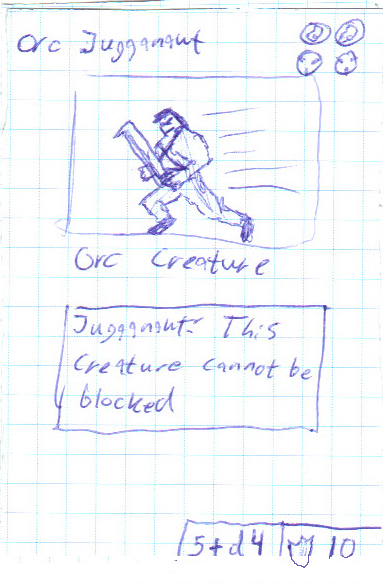 Orc Jugganaut
Orc Creature
Jugganaut: This
Creature cannot be
blocked
5+d4 10